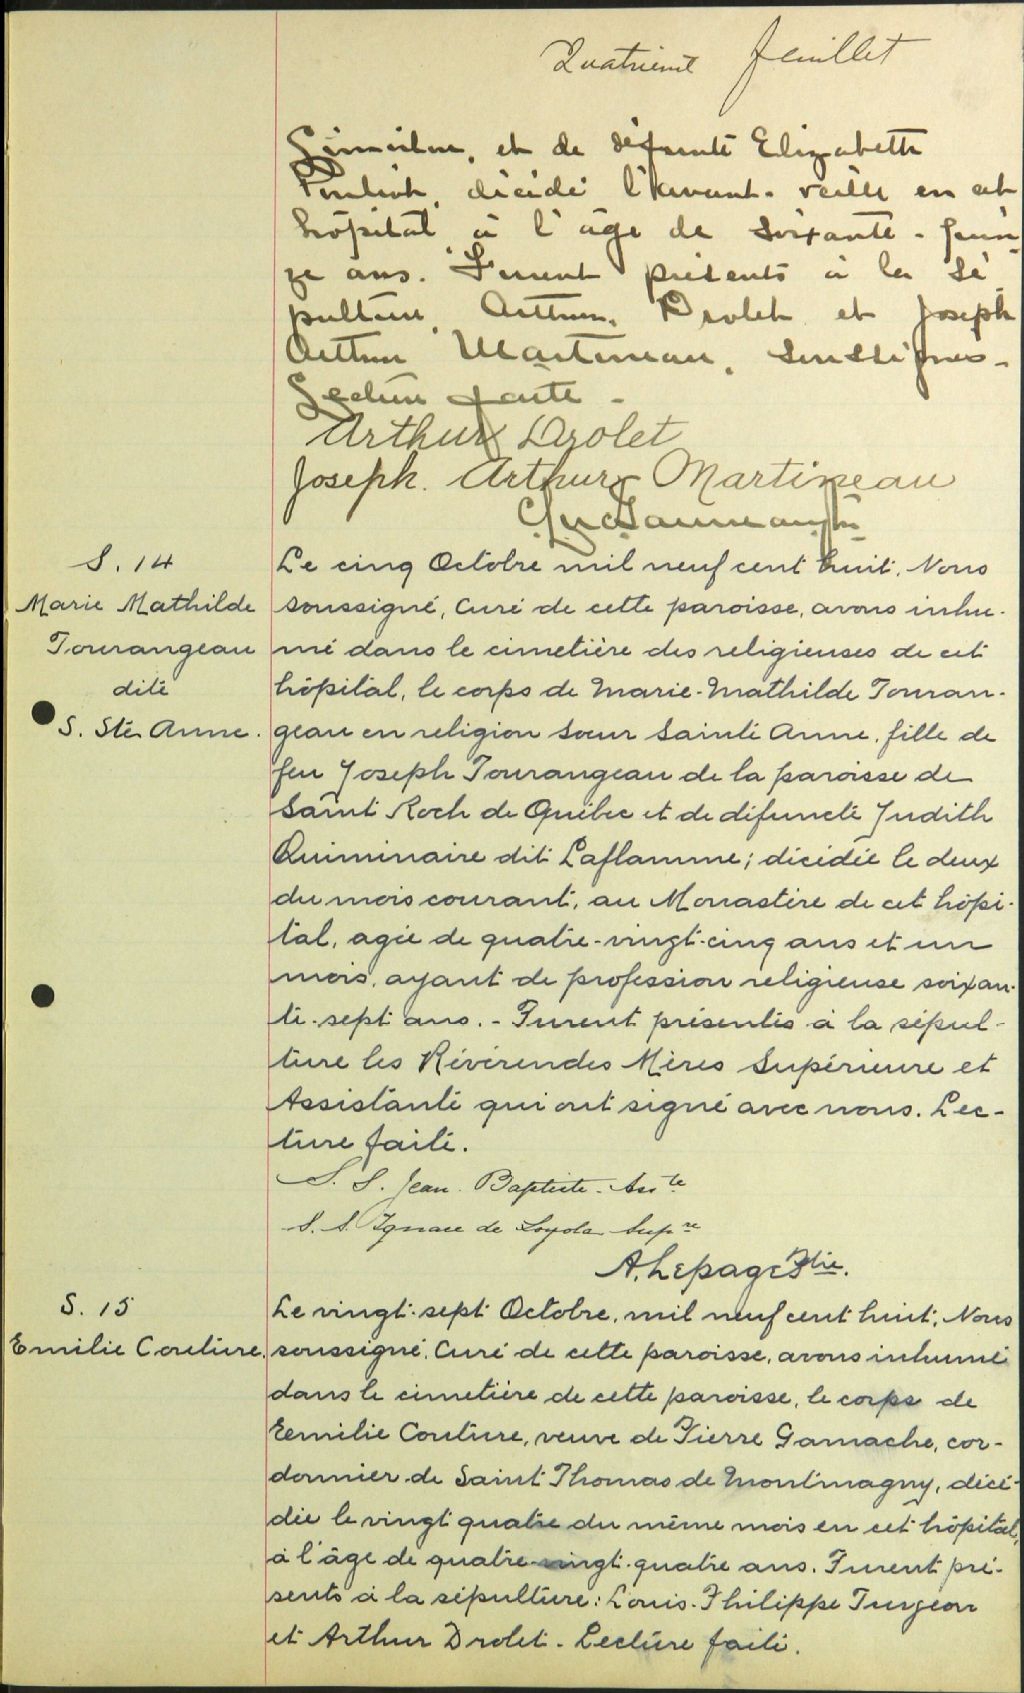 Quatrième feuillet
et de défunte Elizabeth
décédé l'avant-veille en cet
hôpital à l'âge de soixante-quin
ze ans. Furent présents à la sé
pulture, Arthur Drolet et Joseph
Arthur Martineau, soussignés.
Lecture faite.
Arthur Drolet
Joseph. Arthur Martineau
S. 14
Marie Mathilde
Tourangeau
dite
S. Ste Anne.
Le cinq Octobre mil neuf cent huit, Nous
soussigné, Curé de cette paroisse, avons inhu-
mé dans le cimetière des religieuses de cet
hôpital, le corps de Marie-Mathilde Touran-
geau en religion Soeur Sainte Anne, fille de
feu Joseph Tourangeau de la paroisse de
Saint Roch de Québec et de défuncte Judith
Quiminaire dit Laflamme; décédée le deux
du mois courant, au Monastère de cet hôpi-
tal, agée de quatre-vingt-cinq ans et un
mois, ayant de profession religieuse soixan-
te-sept ans. - Furent présentes à la sépul-
ture les Révérendes Mères Supérieure et
Assistante qui ont signé avec nous. Lec-
ture faite.
S. S. Jean Baptiste Asste
S. S. Ignace de Loyola Supre
A. Lepage Ptre.
S. 15
Emilie Couture.
Le vingt-sept Octobre, mil neuf cent huit, Nous
soussigné, Curé de cette paroisse, avons inhumé
dans le cimetière de cette paroisse, le corps de
Eemilie Couture, veuve de Pierre Gamache, cor-
donnier de Saint Thomas de Montmagny, décé-
dée le vingt quatre du même mois en cet hôpital,
à l'âge de quatre-vingt-quatre ans. Furent pré-
sents à la sépulture: Louis-Philippe Turgeon
et Arthur Drolet. Lecture faite.